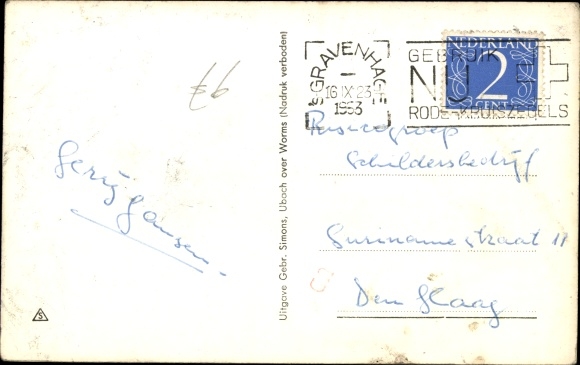 £6
Gerry Jansen
S
Uitgave Gebr. Simons, Ubach over Worms (Nadruk verboden)
'S GRAVENHAGE
16 IX 23
1953
GEBRUIK
NU
RODE-KRUISZEGELS
NEDERLAND
2
CENT
Schildersbedrijf
Surinamestraat 11
Den Haag